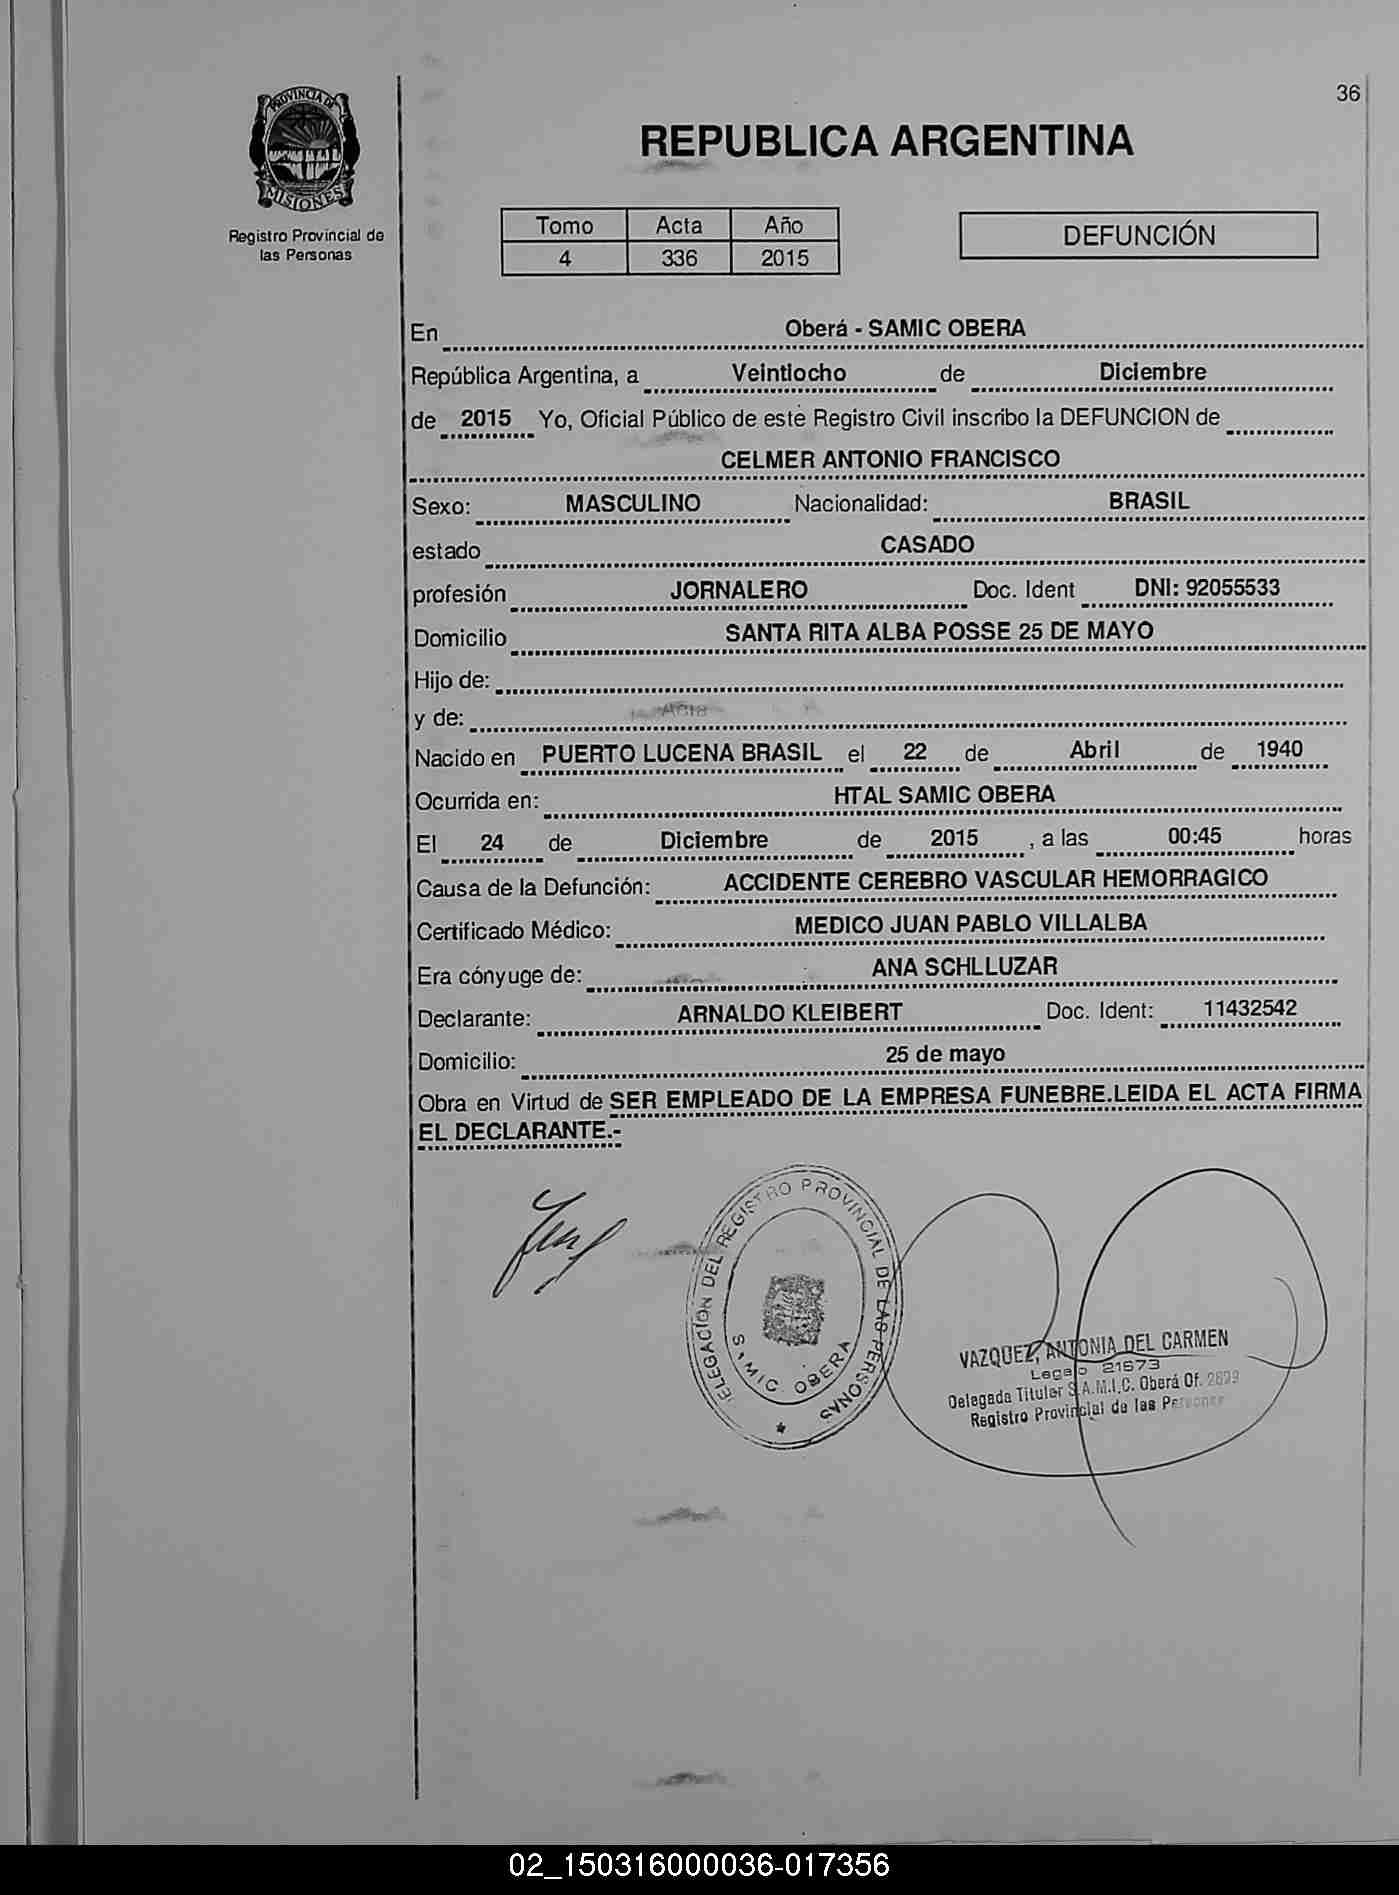 36
PROVINCIA DE
MISIONES
Registro Provincial de
las Personas
REPUBLICA ARGENTINA
Tomo Acta Año
4 336 2015
DEFUNCIÓN
En Oberá - SAMIC OBERA
República Argentina, a Veintiocho de Diciembre
de 2015 Yo, Oficial Público de este Registro Civil inscribo la DEFUNCION de
CELMER ANTONIO FRANCISCO
Sexo: MASCULINO Nacionalidad: BRASIL
estado CASADO
profesión JORNALERO Doc. Ident DNI: 92055533
Domicilio SANTA RITA ALBA POSSE 25 DE MAYO
Hijo de:
y de:
Nacido en PUERTO LUCENA BRASIL el 22 de Abril de 1940
Ocurrida en: HTAL SAMIC OBERA
El 24 de Diciembre de 2015 , a las 00:45 horas
Causa de la Defunción: ACCIDENTE CEREBRO VASCULAR HEMORRAGICO
Certificado Médico: MEDICO JUAN PABLO VILLALBA
Era cónyuge de: ANA SCHLLUZAR
Declarante: ARNALDO KLEIBERT Doc. Ident: 11432542
Domicilio: 25 de mayo
Obra en Virtud de SER EMPLEADO DE LA EMPRESA FUNEBRE.LEIDA EL ACTA FIRMA
EL DECLARANTE.-
DELEGACION DEL REGISTRO PROVINCIAL DE LAS PERSONAS
SAMIC OBERA
VAZQUEZ, ANTONIA DEL CARMEN
Legajo 21673
Delegada Titular S.A.M.I.C. Oberá Of. 2699
Registro Provincial de las Personas
02_150316000036-017356